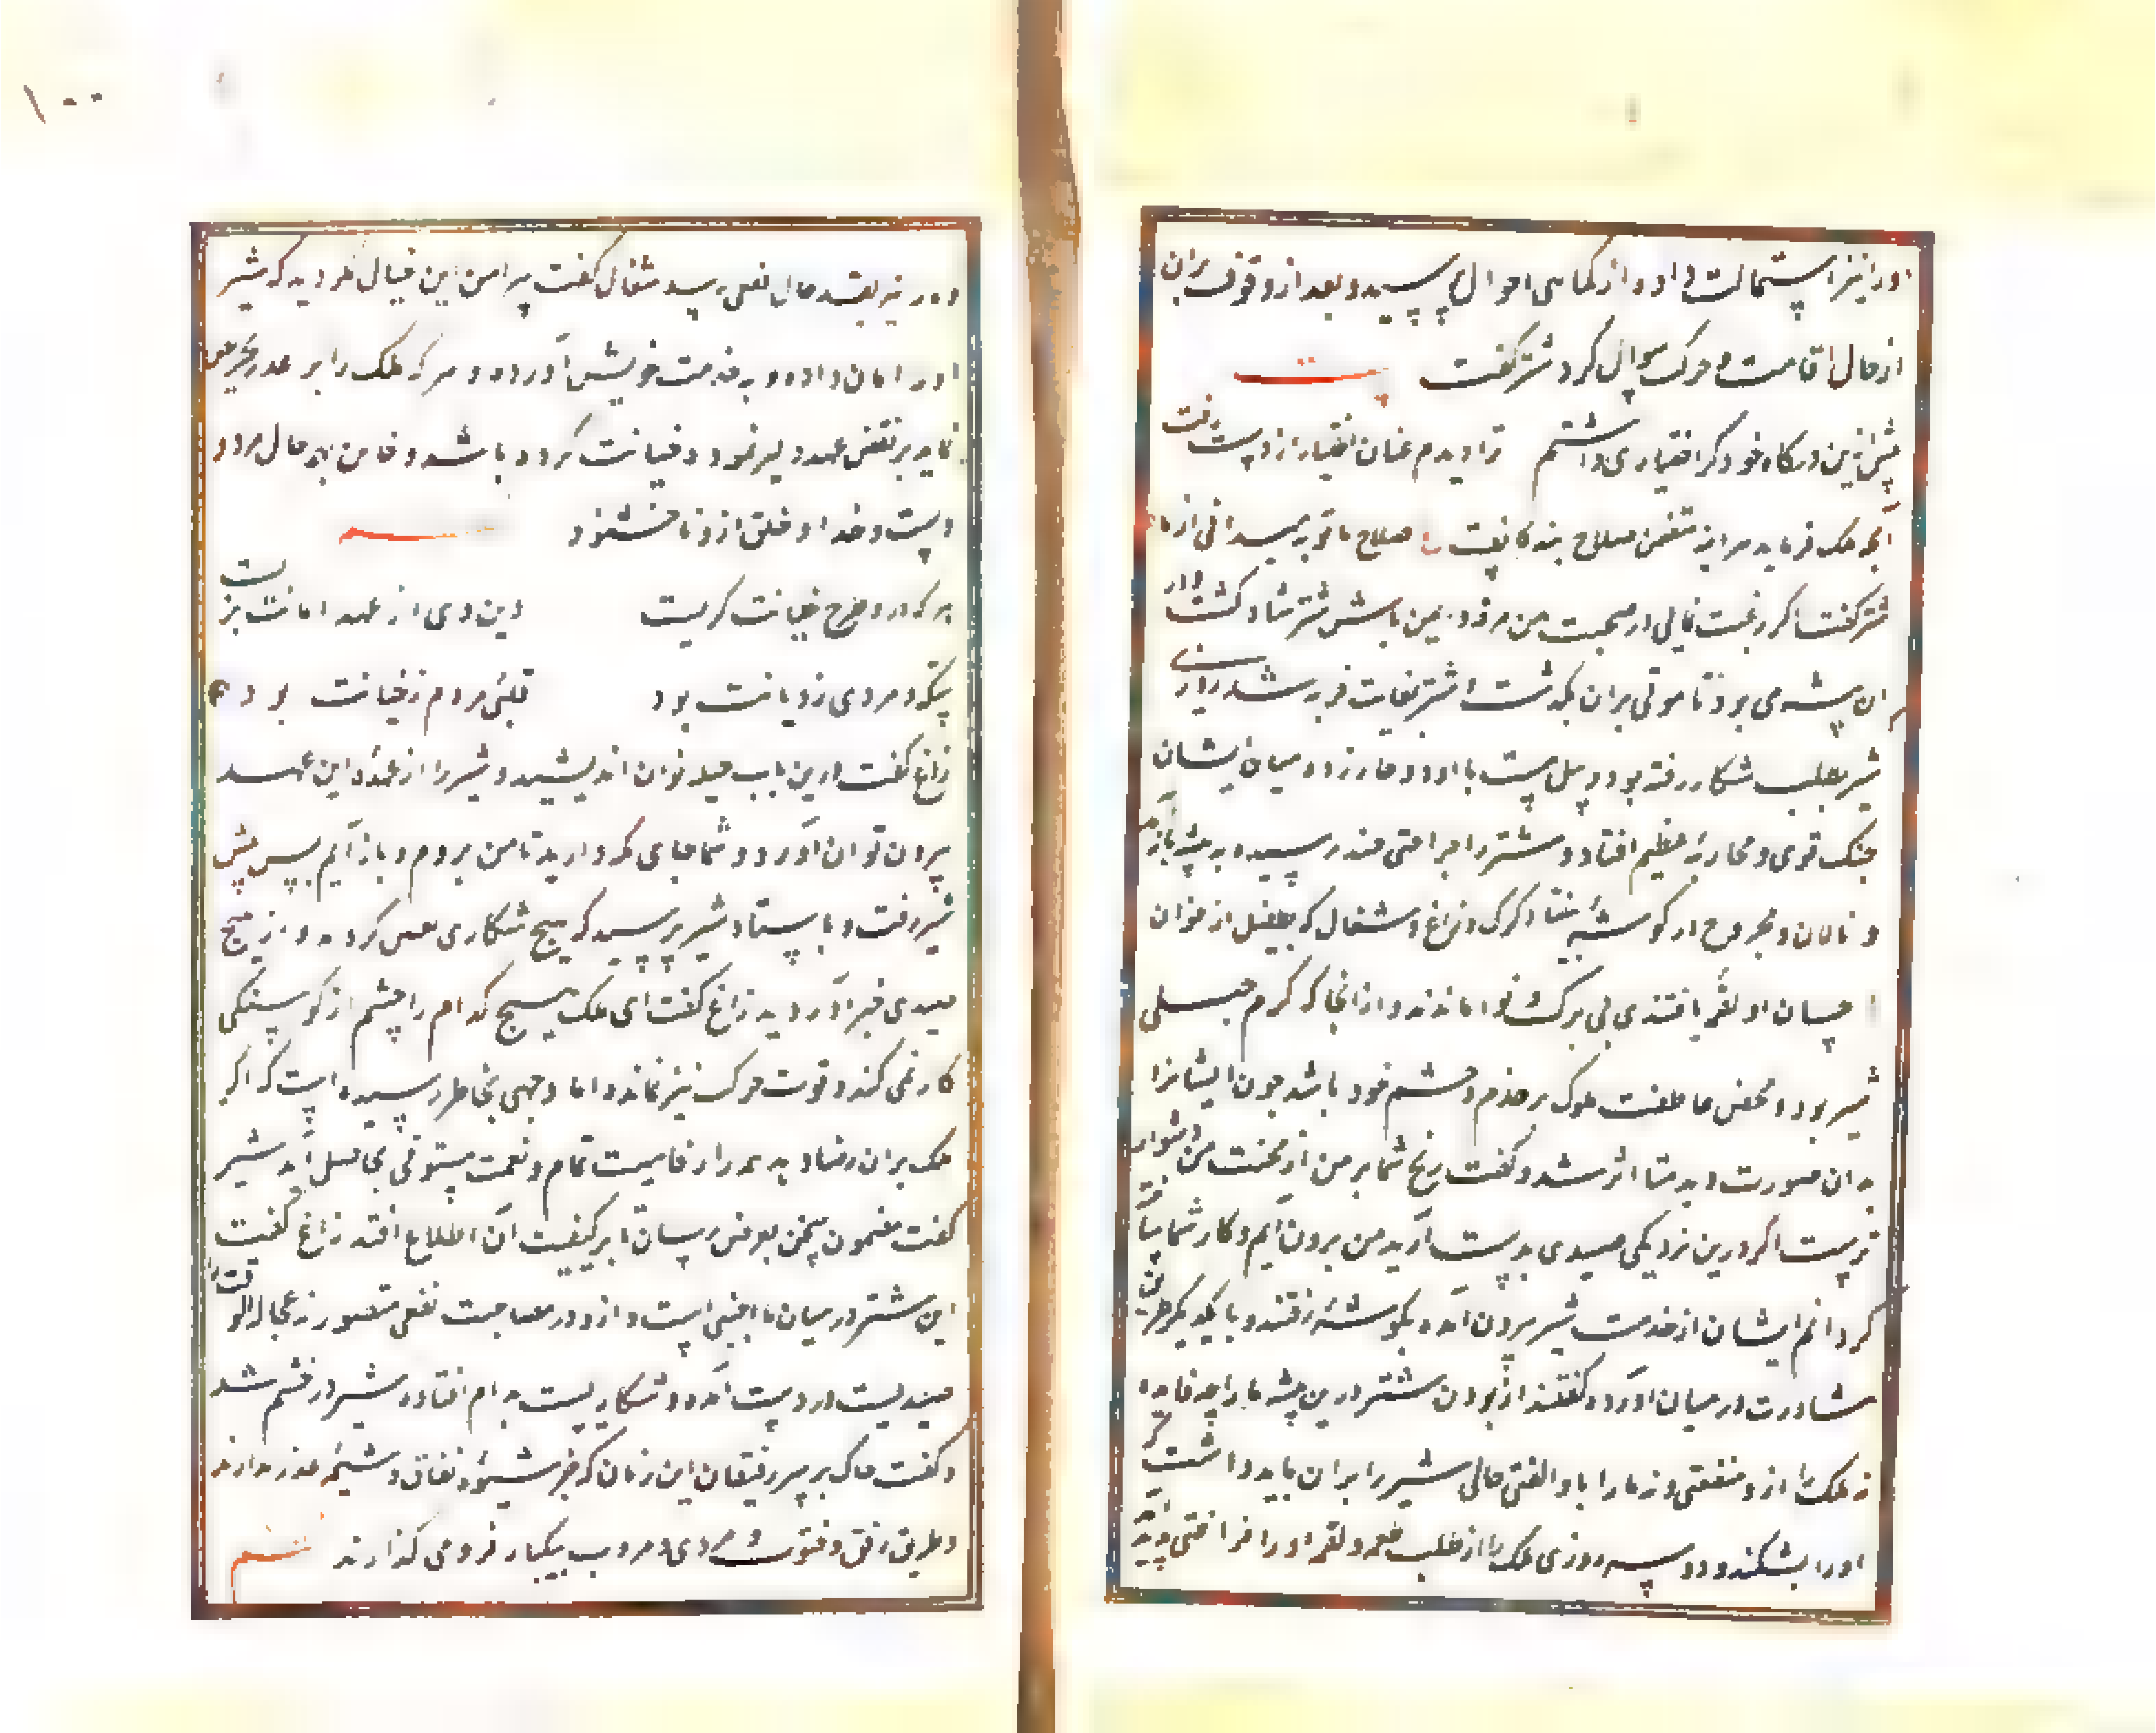 او را نیز استمالت داد و از کماهی احوال پرسید و بعد از وقوف بران
از حال اقامت و حرکت سوال کرد شتر گفت بیت
پیش ازین در کار خود گر اختیاری داشتم ترا دیدم عنان اختیار از دست رفت
آنچه ملک فرماید هر آینه متضمن صلاح بندگانست ع صلاح ما تو به میدانی از ما
شیر گفت اگر رغبت نمایی در صحبت من مرفه و ایمن باش شتر شاد گشت و در
ان بیشه می بود تا مدتی بران بگذشت و شتر بغایت فربه شد روزی
شیر بطلب شکار رفته بود و پیل مست با او دوچار زد و میان ایشان
جنک قوی و محاربهٔ عظیم افتاد و شیر را جراحتی چند رسیده به بیشه باز آمد
و نالان و مجروح در گوشهٔ بیفتاد گرگ و زاغ و شغال که بطفیل از خوان
احسان او لقمه یافتندی بی برگ و نوا ماندند و از انجا که کرم جبلی
شیر بود و محض عاطفت ملوک بر خدم و حشم خود باشد چون ایشانرا
بدان صورت دید متاثر شد و گفت رنج شما بر من از محنت من دشوار
ترست اگر درین نزدیکی صیدی بدست آرید من برون آیم و کار شما ساخته
گردانم ایشان از خدمت شیر برون آمده بگوشهٔ رفتند و با یکدیگر طریق
مشاورت در میان آورده گفتند از بودن شتر درین بیشه ما را چه فایده
نه ملک را ازو منفعتی و نه ما را با او الفتی حالی شیر را بران باید داشت که
او را بشکند و دو سه روزی ملک را از طلب طعمه و لقمه او را فراغتی پدید آید
و ما را نیز بقدر حال نفعی رسد شغال گفت پیرامن این خیال مگردید که شیر
او را امان داده و به خدمت خویش آورده و هر که ملک را بر غدر تحریص
نماید بر نقض عهد دلیر نمود و خیانت کرده باشد و خاین بهمه حال مردود
دست و خدا و خلق ازو ناخشنود
هر که درو طرح خیانت گریست دین وی از عهد امانت بریست
سکه مردی ز دیانت بود قلبی مردم ز خیانت بود
زاغ گفت درین باب حیله توان اندیشید و شیر را از عهدهٔ این عهد
برون توان آورد و شما جای نگه دارید تا من بروم و باز آیم پس پیش
شیر رفت و بایستاد شیر پرسید که هیچ شکاری حس کردید و از هیچ
صیدی خبر آوردید زاغ گفت ای ملک هیچ کدام را چشم از گرسنگی
کار نمی کند و قوت حرکت نیز نمانده اما وجهی بخاطر رسیده است که اگر
ملک بران رضا دهد همه را رفاهیت تمام و نعمت مستوفی بحاصل آید شیر
گفت مضمون سخن بعرض رسان تا بر کیفیت آن اطلاع افتد زاغ گفت
این شتر در میان ما اجنبی است و ازو در مصاحبت نفعی متصور نه بحال الوقت
صیدیست در دست آمده و شکاریست به دام افتاده شیر در خشم شد
و گفت خاک بر سر رفیقان این زمان که جز شیوهٔ نفاق و شیمهٔ غدر ندارند
و طریق رفق و فتوت و مردی و مروت بیکبار فرو می گذارند نظم
۱۰۰